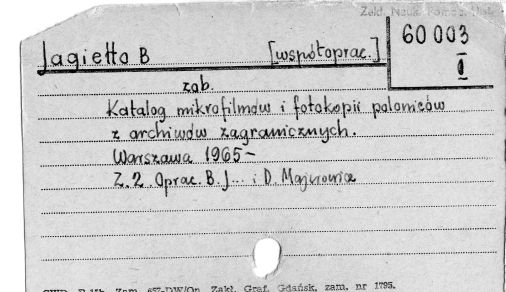 Zakł. Nauk
60 003
I
Jagiełło B [współoprac.]
zob.
Katalog mikrofilmów i fotokopii poloniców
z archiwów zagranicznych.
Warszawa 1965-
Z. 2. Oprac. B. J... i D.
Zam. 657-DW/Op. Zakł. Graf. Gdańsk, zam. nr 1795.